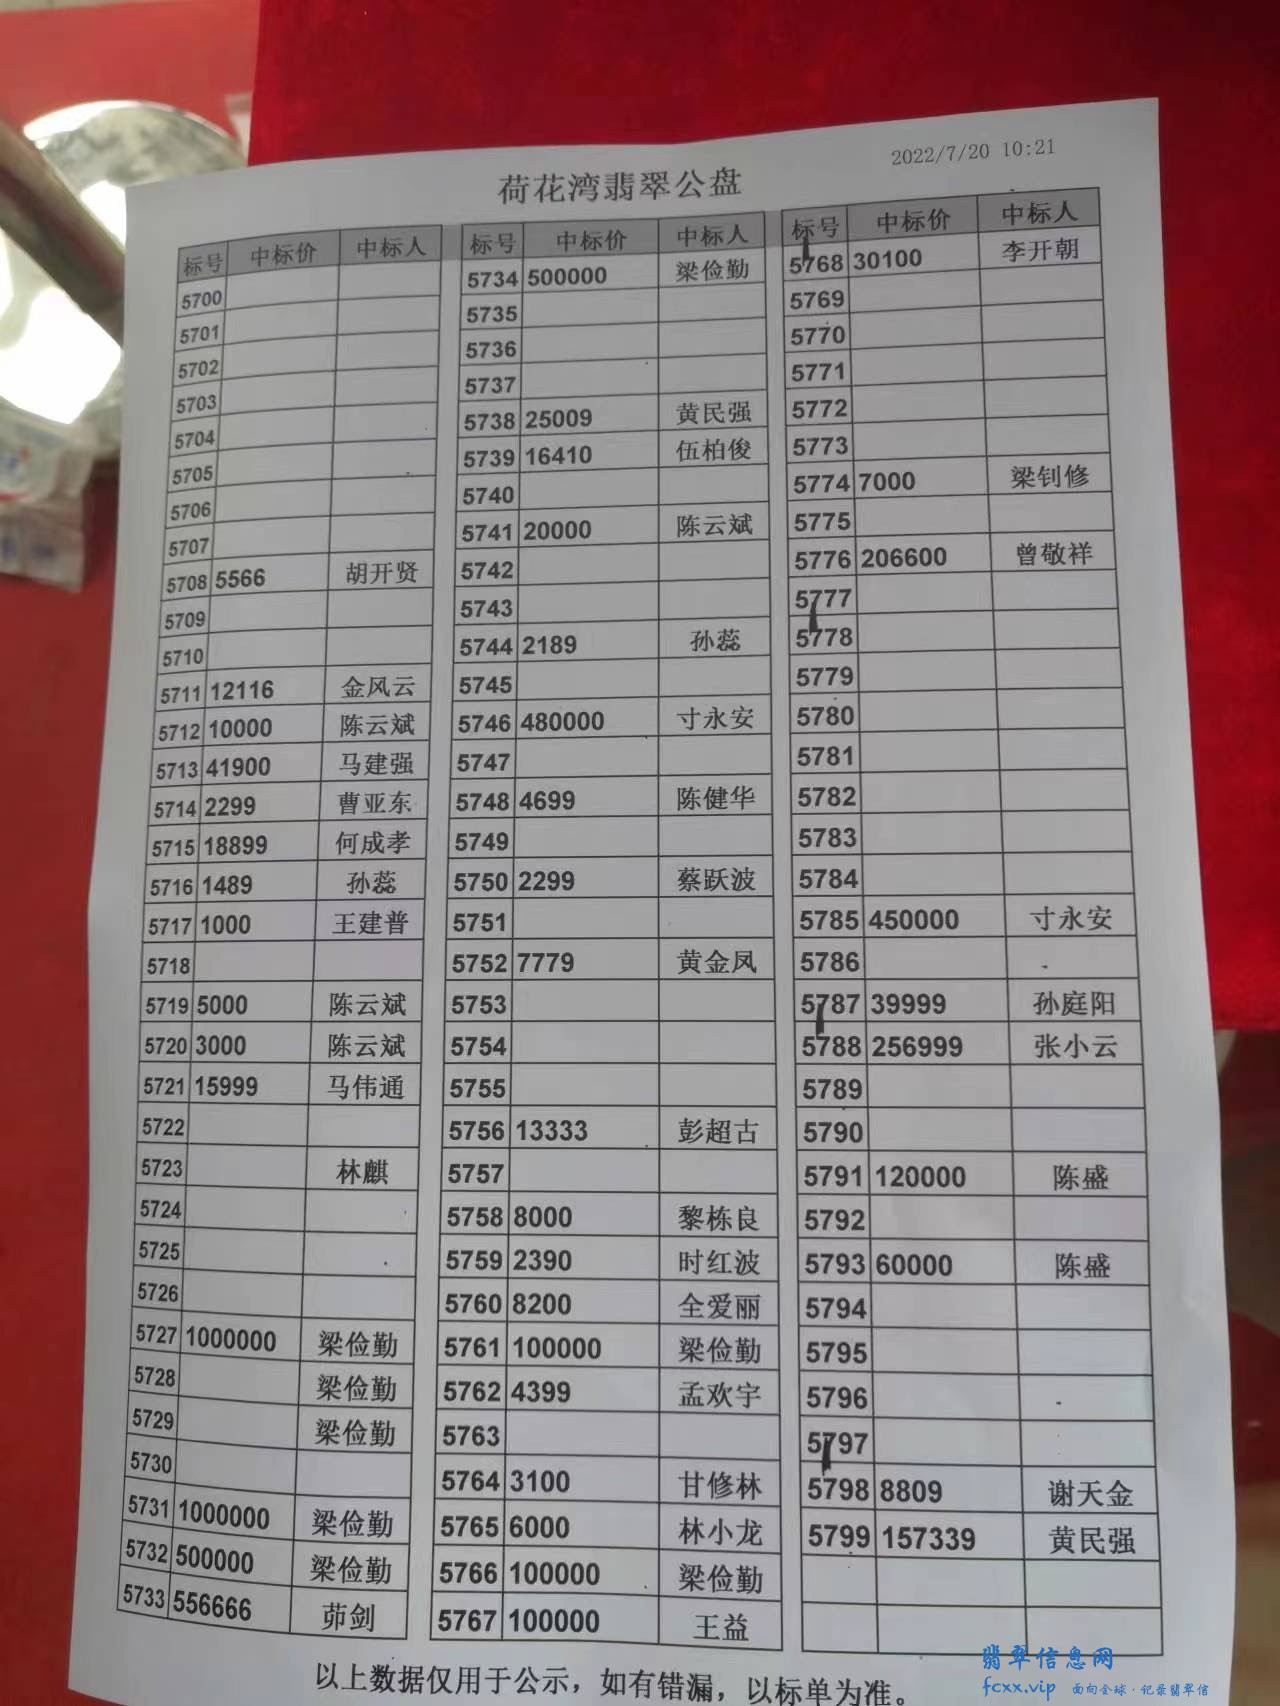 2022/7/20 10:21
荷花湾翡翠公盘
标号 中标价 中标人
5700
5701
5702
5703
5704
5705
5706
5707
5708 5566 胡开贤
5709
5710
5711 12116 金风云
5712 10000 陈云斌
5713 41900 马建强
5714 2299 曹亚东
5715 18899 何成孝
5716 1489 孙蕊
5717 1000 王建普
5718
5719 5000 陈云斌
5720 3000 陈云斌
5721 15999 马伟通
5722
5723 林麒
5724
5725
5726
5727 1000000 梁俭勤
5728 梁俭勤
5729 梁俭勤
5730
5731 1000000 梁俭勤
5732 500000 梁俭勤
5733 556666 茆剑
标号 中标价 中标人
5734 500000 梁俭勤
5735
5736
5737
5738 25009 黄民强
5739 16410 伍柏俊
5740
5741 20000 陈云斌
5742
5743
5744 2189 孙蕊
5745
5746 480000 寸永安
5747
5748 4699 陈健华
5749
5750 2299 蔡跃波
5751
5752 7779 黄金凤
5753
5754
5755
5756 13333 彭超古
5757
5758 8000 黎栋良
5759 2390 时红波
5760 8200 全爱丽
5761 100000 梁俭勤
5762 4399 孟欢宇
5763
5764 3100 甘修林
5765 6000 林小龙
5766 100000 梁俭勤
5767 100000 王益
标号 中标价 中标人
5768 30100 李开朝
5769
5770
5771
5772
5773
5774 7000 梁钊修
5775
5776 206600 曾敬祥
5777
5778
5779
5780
5781
5782
5783
5784
5785 450000 寸永安
5786
5787 39999 孙庭阳
5788 256999 张小云
5789
5790
5791 120000 陈盛
5792
5793 60000 陈盛
5794
5795
5796
5797
5798 8809 谢天金
5799 157339 黄民强
以上数据仅用于公示，如有错漏，以标单为准。
翡翠信息网
fcxx.vip 面向全球·记录翡翠信